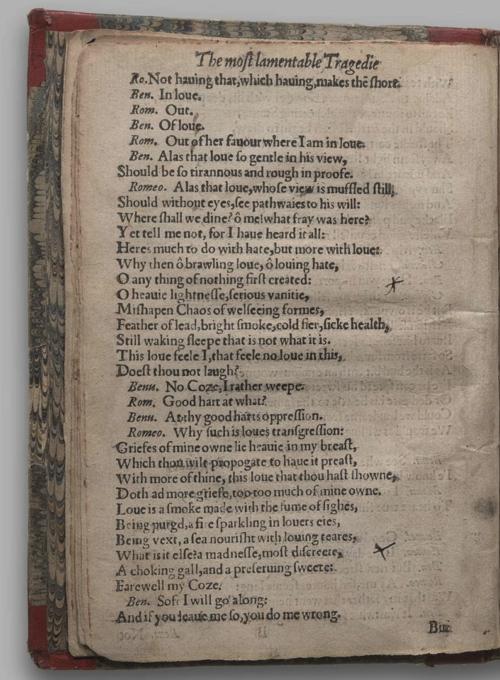 The most lamentable Tragedie
Ro. Not hauing that, which hauing, makes thē short.
Ben. In loue.
Rom. Out.
Ben. Of loue.
Rom. Out of her fauour where I am in loue.
Ben. Alas that loue so gentle in his view,
Should be so tirannous and rough in proofe.
Romeo. Alas that loue, whose view is muffled still,
Should without eyes, see pathwaies to his will:
Where shall we dine? ô me! what fray was here?
Yet tell me not, for I haue heard it all:
Heres much to do with hate, but more with loue:
Why then ô brawling loue, ô louing hate,
O any thing of nothing first created:
O heauie lightnesse, serious vanitie,
Mishapen Chaos of welseeing formes,
Feather of lead, bright smoke, cold fier, sicke health,
Still waking sleepe that is not what it is.
This loue feele I, that feele no loue in this,
Doest thou not laugh?
Benu. No Coze, I rather weepe.
Rom. Good hart at what?
Benu. At thy good harts oppression.
Romeo. Why such is loues transgression:
Griefes of mine owne lie heauie in my breast,
Which thou wilt propogate to haue it preast,
With more of thine, this loue that thou hast showne,
Doth ad more griefe, too too much of mine owne.
Loue is a smoke made with the fume of sighes,
Being purgd, a fire sparkling in louers eies,
Being vext, a sea nourisht with louing teares,
What is it else? a madnesse, most discreete,
A choking gall, and a preseruing sweete:
Farewell my Coze.
Ben. Soft I will go along:
And if you leaue me so, you do me wrong.